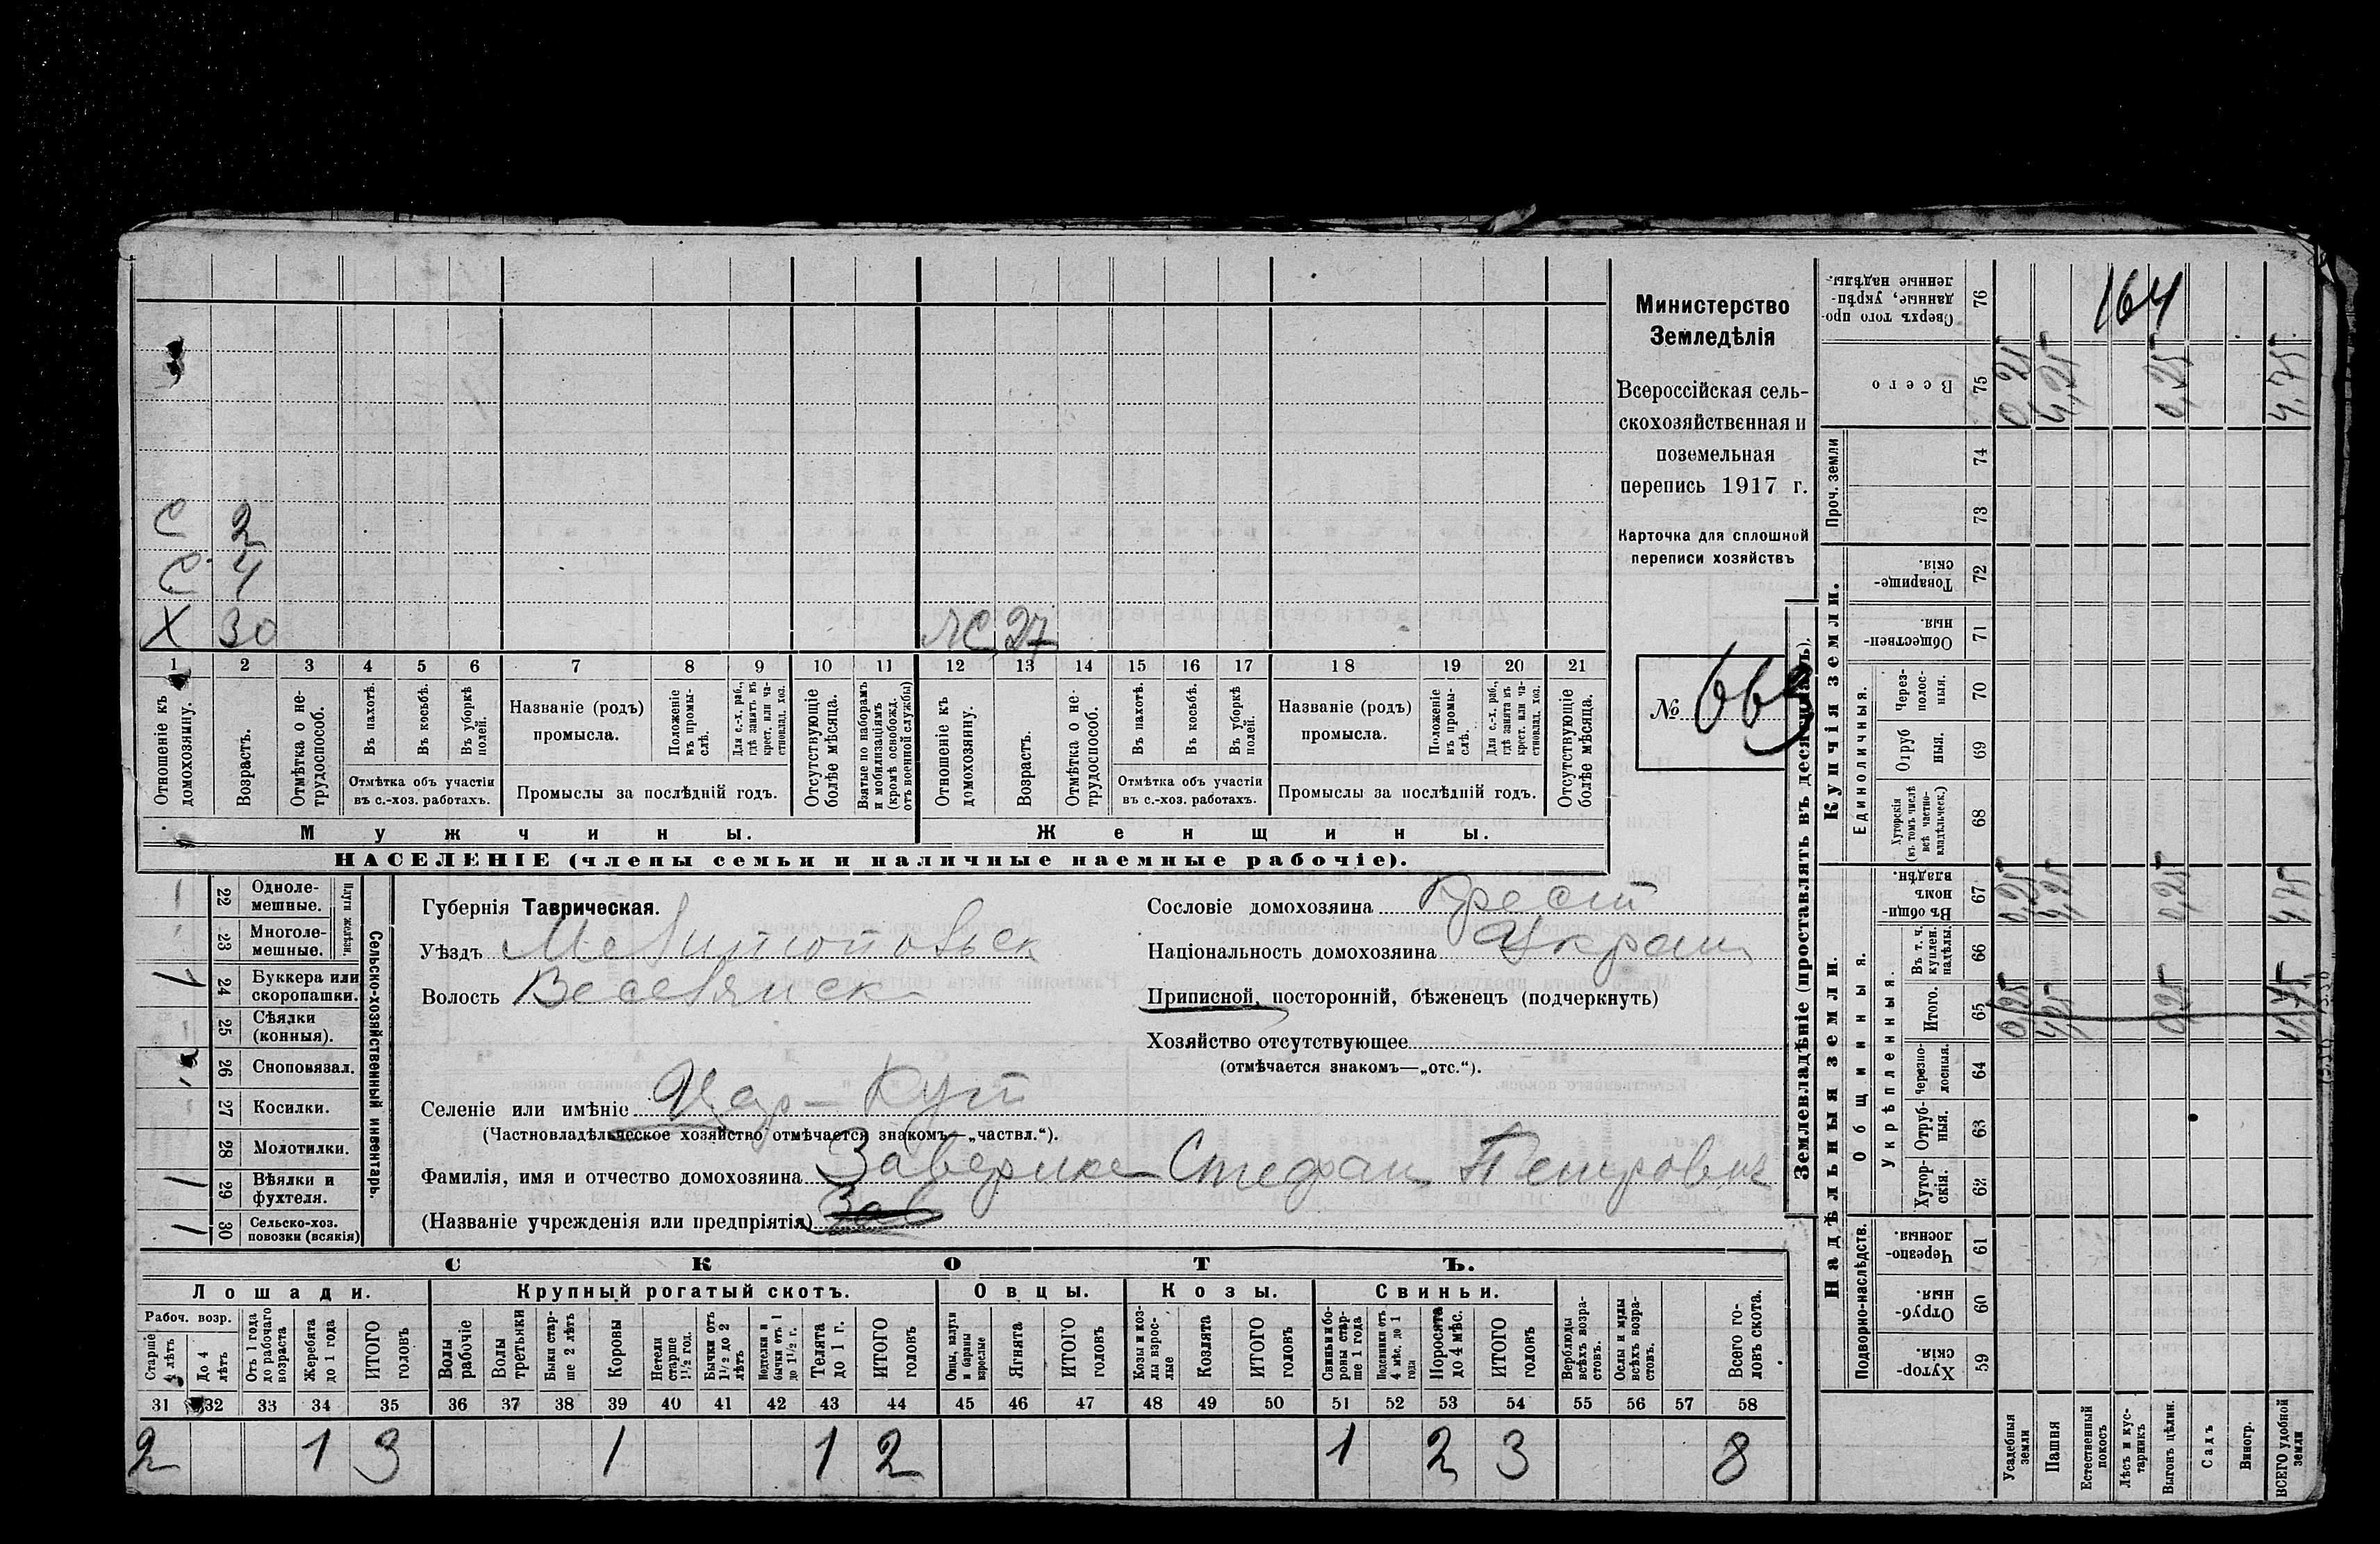 С 2
С 4
Х 30 ЖС 27
1 2 3 4 5 6 7 8 9 10 11 12 13 14 15 16 17 18 19 20 21
Отношеніе къ домохозяину.
Возрастъ.
Отмѣтка о не-трудоспособ.
Въ пахотѣ.
Въ косьбѣ.
Въ уборкѣ полей.
Отмѣтка объ участіи въ с.-хоз. работахъ.
Названіе (родъ) промысла.
Положеніе въ промы-слѣ.
Для с.-х. раб., гдѣ занятъ въ крест. или ча-стновлад. хоз.
Промыслы за послѣдній годъ.
Отсутствующіе болѣе мѣсяца.
Взятые по наборамъ и мобилизаціямъ (кромѣ освобожд. отъ военной службы)
Отношеніе къ домохозяину.
Возрастъ.
Отмѣтка о не-трудоспособ.
Въ пахотѣ.
Въ косьбѣ.
Въ уборкѣ полей.
Отмѣтка объ участіи въ с.-хоз. работахъ.
Названіе (родъ) промысла.
Положеніе въ промы-слѣ.
Для с.-х. раб., гдѣ занята въ крест. или ча-стновлад. хоз.
Промыслы за послѣдній годъ.
Отсутствующіе болѣе мѣсяца.
Мужчины. Женщины.
НАСЕЛЕНІЕ (члены семьи и наличные наемные рабочіе).
Министерство
Земледѣлія
Всероссійская сель-
скохозяйственная и
поземельная
перепись 1917 г.
Карточка для сплошной
переписи хозяйствъ
№ 663
22 Одноле-мешные.
23 Многоле-мешные.
Плуги желѣзн.
1 24 Буккера или скоропашки.
25 Сѣялки (конныя).
26 Сноповязал.
27 Косилки.
28 Молотилки.
1 29 Вѣялки и фухтеля.
1 30 Сельско-хоз. повозки (всякія)
Сельско-хозяйственный инвентарь.
Губернія Таврическая.
Уѣздъ Мелитопольск
Волость Веселянск
Селеніе или имѣніе Цар-Кут
(Частновладѣльческое хозяйство отмѣчается знакомъ—„частвл.“).
Фамилія, имя и отчество домохозяина Стефан Петрович
(Названіе учрежденія или предпріятія) Зав
Сословіе домохозяина Крест
Національность домохозяина Украин
Приписной, посторонній, бѣженецъ (подчеркнуть)
Хозяйство отсутствующее
(отмѣчается знакомъ—„отс.“).
СКОТЪ.
Лошади. Крупный рогатый скотъ. Овцы. Козы. Свиньи.
Рабоч. возр.
Старше 4 лѣтъ
До 4 лѣтъ
Отъ 1 года до рабочаго возраста
Жеребята до 1 года
ИТОГО головъ
Волы рабочіе
Волы третьяки
Быки стар-ше 2 лѣтъ
Коровы
Нетели старше 1½ год.
Бычки отъ 1½ до 2 лѣтъ
Подтелки и бычки отъ 1 до 1½ г.
Телята до 1 г.
ИТОГО головъ
Овцы, валухи и бараны взрослые
Ягнята
ИТОГО головъ
Козы и коз-лы взрос-лые
Козлята
ИТОГО головъ
Свиньи и бо-ровы стар-ше 1 года
Подсвинки отъ 4 мѣс. до 1 года
Поросята до 4 мѣс.
ИТОГО головъ
Верблюды всѣхъ возра-стовъ.
Ослы и мулы всѣхъ возра-стовъ.
Всего го-ловъ скота.
31 32 33 34 35 36 37 38 39 40 41 42 43 44 45 46 47 48 49 50 51 52 53 54 55 56 57 58
2 1 3 1 1 2 1 2 3 8
Землевладѣніе (проставлять въ десятинахъ).
Сверхъ того про-данные, укрѣп-ленные надѣлы. 76
164
Всего 75 0,25 4,25 0,25 4,75
Проч. земли 74
73
Купчія земли.
Товарище-скія. 72
Обществен-ныя. 71
Единоличныя.
Через-полос-ныя. 70
Отруб ныя. 69
Хуторскія (въ томъ числѣ всѣ частно-владѣльческ.) 68
Надѣльныя земли.
Общинныя.
Въ общин-номъ владѣн. 67 0,25 4,25 0,25 4,75
Укрѣпленныя.
Въ т. ч. куплен. надѣлы. 66
Итого. 65 0,25 4,25 0,25 4,75
Черезпо-лосныя. 64
Отруб-ныя. 63
Хутор-скія. 62
Подворно-наслѣдств.
Черезпо-лосныя. 61
Отруб-ныя. 60
Хутор-скія. 59
Усадебныя земли
Пашня
Естественный покосъ
Лѣсъ и кус-тарникъ
Выгонъ цѣлин.
Садъ
Виногр.
ВСЕГО удобной земли